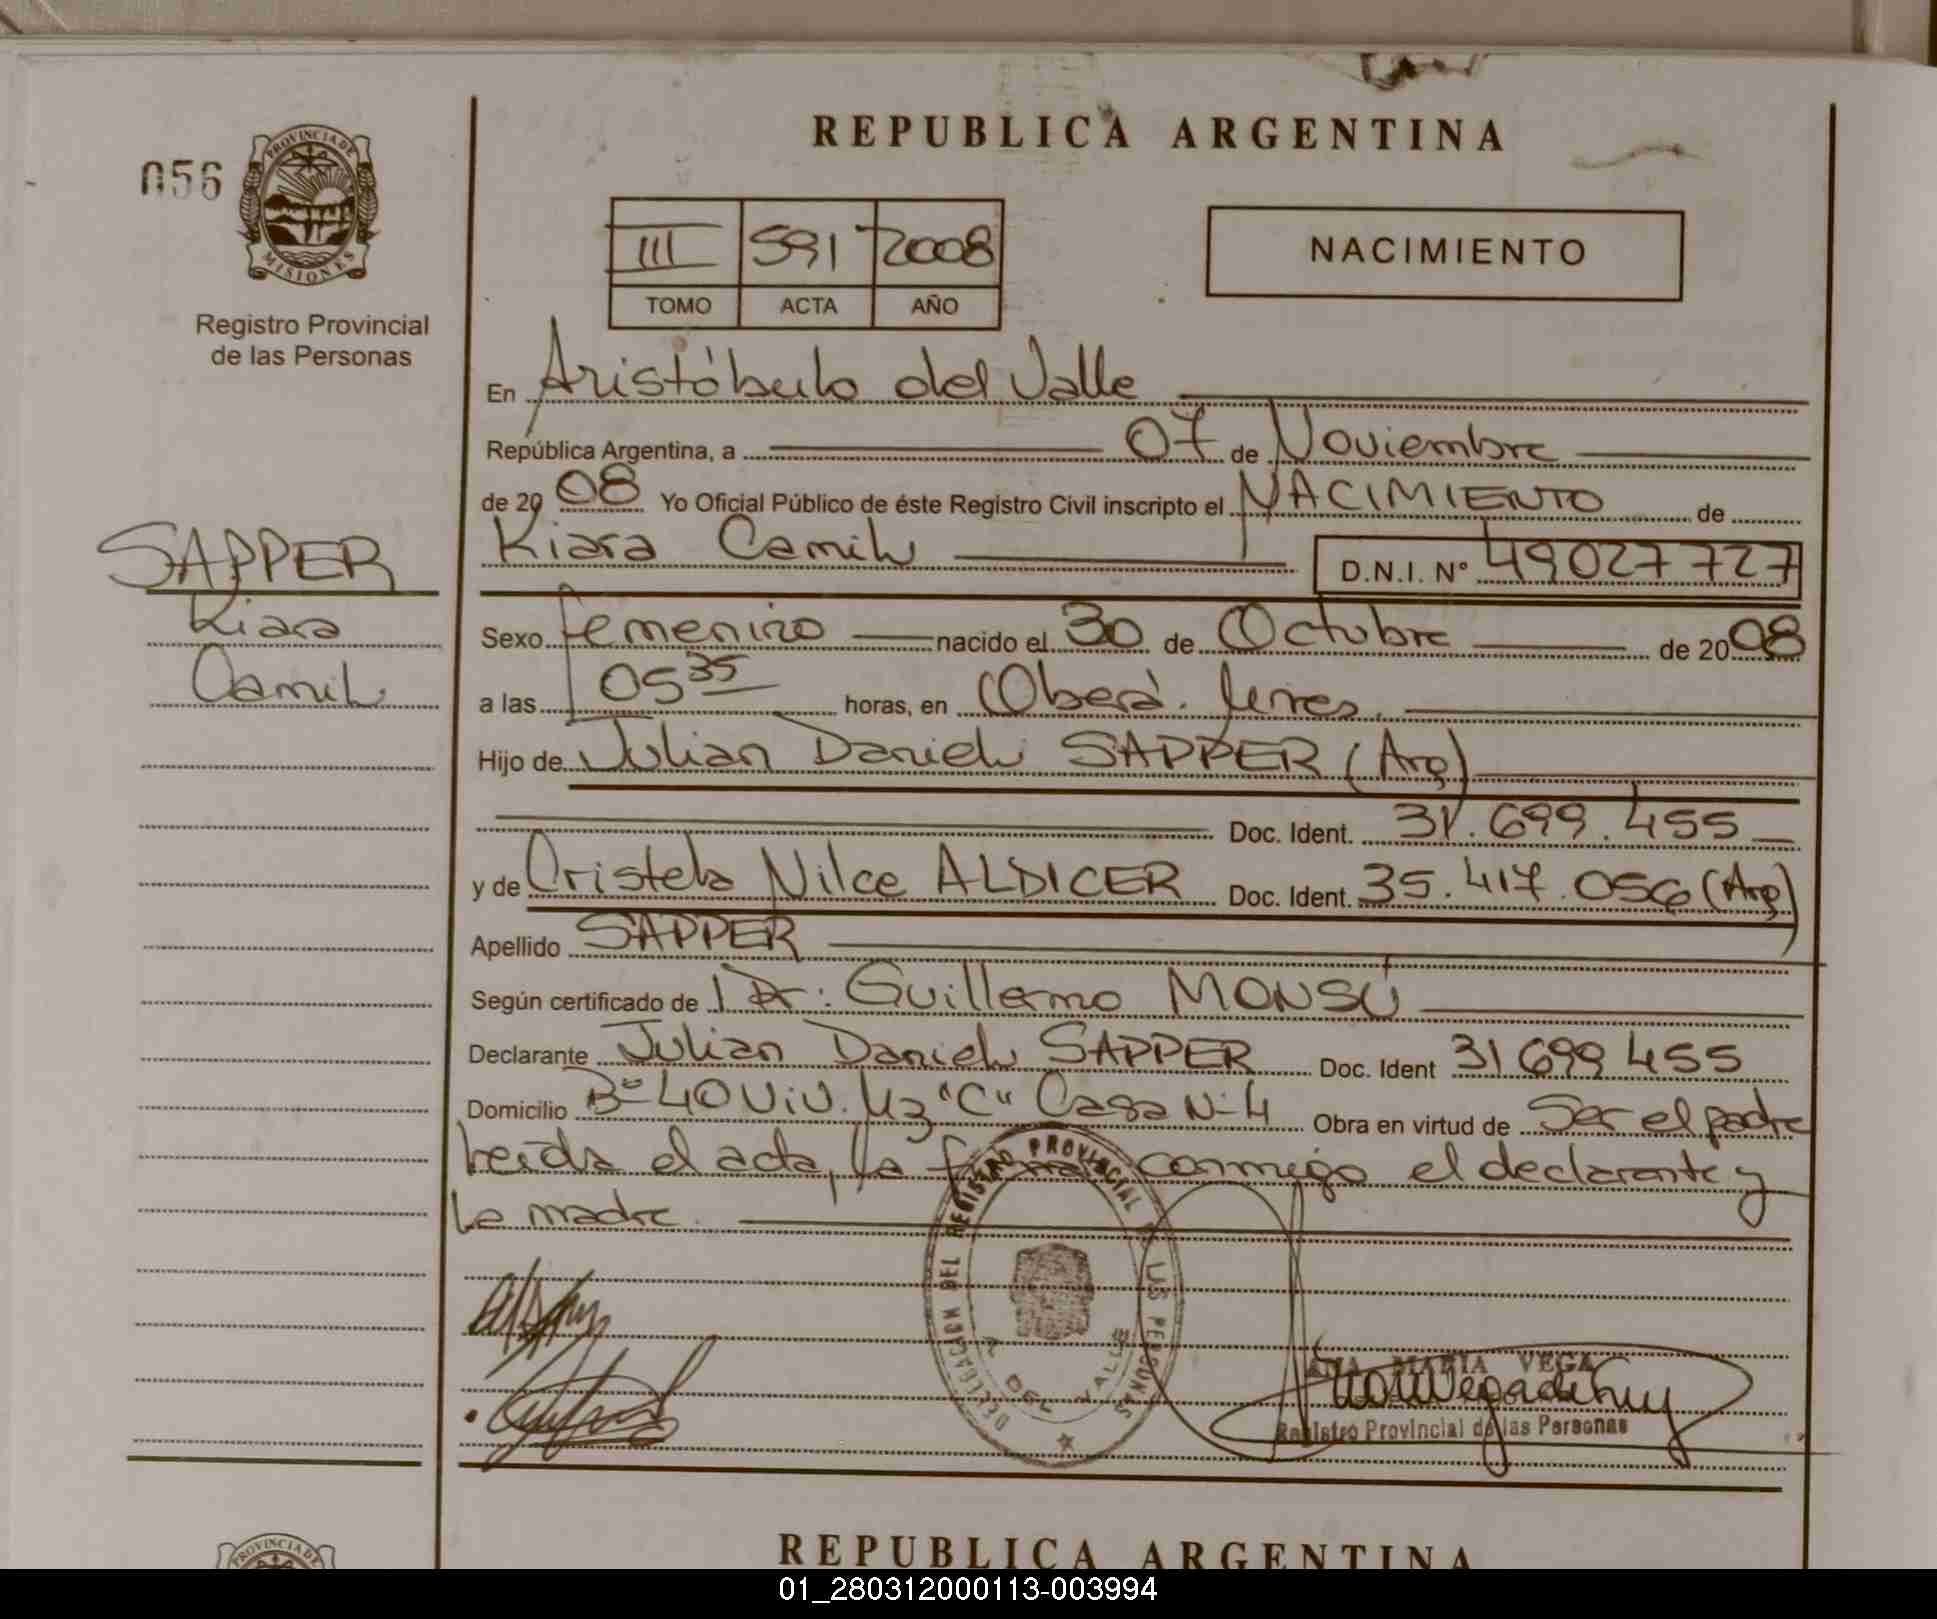 REPUBLICA ARGENTINA
056
PROVINCIA DE MISIONES
Registro Provincial
de las Personas
III 591 2008
TOMO ACTA AÑO
NACIMIENTO
En Aristóbulo del Valle
República Argentina, a 07 de Noviembre
de 2008 Yo Oficial Público de éste Registro Civil inscripto el NACIMIENTO de
Kiara Camila D.N.I. Nº 49027727
SAPPER
Kiara
Camila
Sexo femenino nacido el 30 de Octubre de 2008
a las 05 35 horas, en Oberá.
Hijo de Julian Daniel SAPPER (Arg)
Doc. Ident. 31.699.455
y de Cristela Nilce ALDICER Doc. Ident. 35.417.056 (Arg)
Apellido SAPPER
Según certificado de Dr. Guillermo MONSÚ
Declarante Julian Daniel SAPPER Doc. Ident 31699455
Domicilio Bº 40 Viv. Mz "C" Casa Nº 4 Obra en virtud de Ser el padre
Leida el acta, la firma conmigo el declarante y
la madre.
DELEGACION DEL REGISTRO PROVINCIAL DE LAS PERSONAS
A DEL VALLE
ANA MARIA VEGA
Registro Provincial de las Personas
PROVINCIA DE
REPUBLICA ARGENTINA
01_280312000113-003994